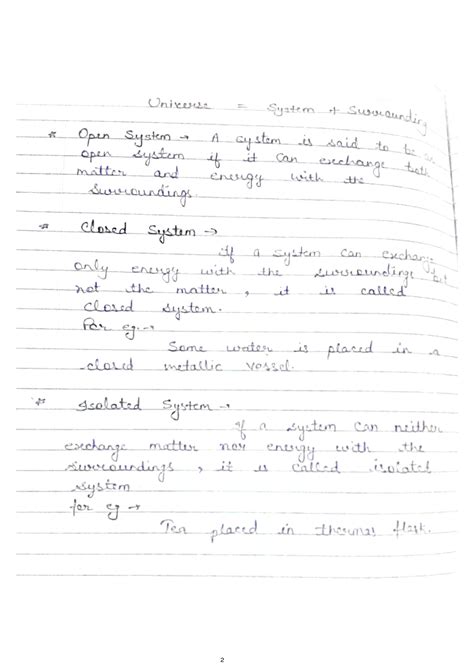 Universe = System + Surrounding
* Open System → A system is said to be
open system if it can exchange both
matter and energy with the
surroundings.
* Closed System →
If a system can exchange
only energy with the surroundings but
not the matter, it is called
closed system.
For eg. →
Some water is placed in a
closed metallic vessel.
* Isolated System →
If a system can neither
exchange matter nor energy with the
surroundings, it is called isolated
system
for eg →
Tea placed in thermas flask.
2